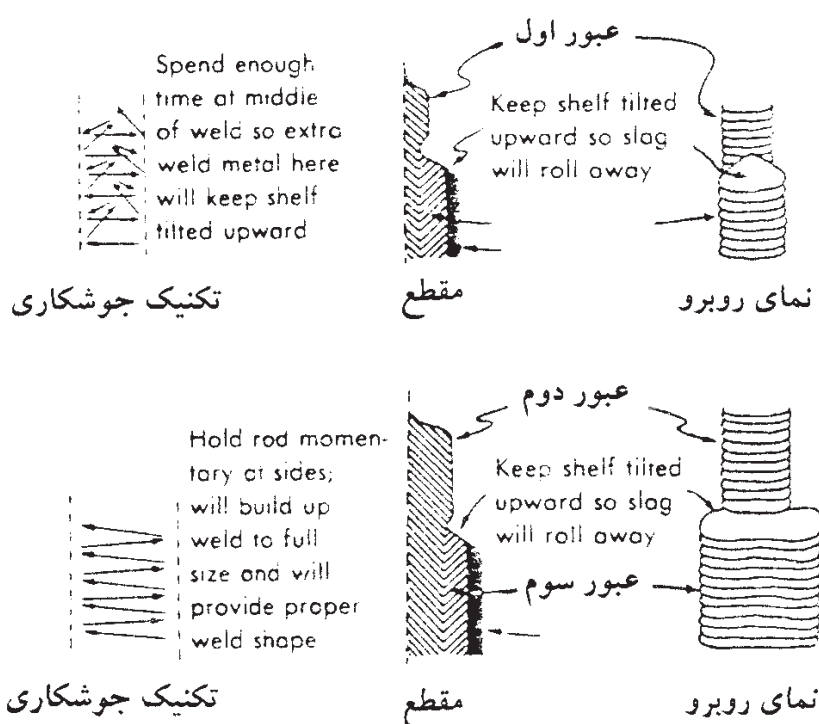 Spend enough
time at middle
of weld so extra
weld metal here
will keep shelf
tilted upward
عبور اول
Keep shelf tilted
upward so slag
will roll away
تکنیک جوشکاری
مقطع
نمای روبرو
Hold rod momen-
tary at sides;
will build up
weld to full
size and will
provide proper
weld shape
عبور دوم
Keep shelf tilted
upward so slag
will roll away
عبور سوم
تکنیک جوشکاری
مقطع
نمای روبرو